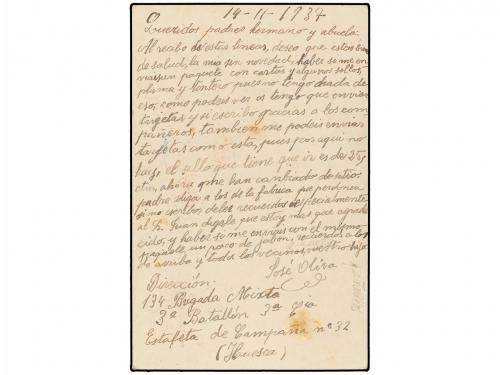 14-11-1937
Queridos padres hermano y abuela:
Al recibo de estas lineas, deseo que esteis bien
de salud, la mia sin novedad, haber si me en
viais un paquete con cartas y algunos sellos,
pluma y tintero pues no tengo nada de
eso, como podeis ver os tengo que enviar
targetas y si escribo gracias a los com
pañeros, tambien me podeis enviar
targetas como esta, pues por aqui no
hay, el sello que tiene que ir es de 25
ctm, ahora me han cambiado de sitio.
padre diga a los de la fabrica que perdonen
si no escribo, deles recuerdos especialmente
al Sr. Juan digale que estoy mas que agrade
cido, y haber si me envias con el mismo
paquete un poco de jabón, recuerdos a los
de arriba y todos los vecinos, vuestro hijo
José Oliva
Dirección:
134 Brigada Mixta
3º Batallón 3ª Cia
Estafeta de Campaña nº 32
(Huesca)